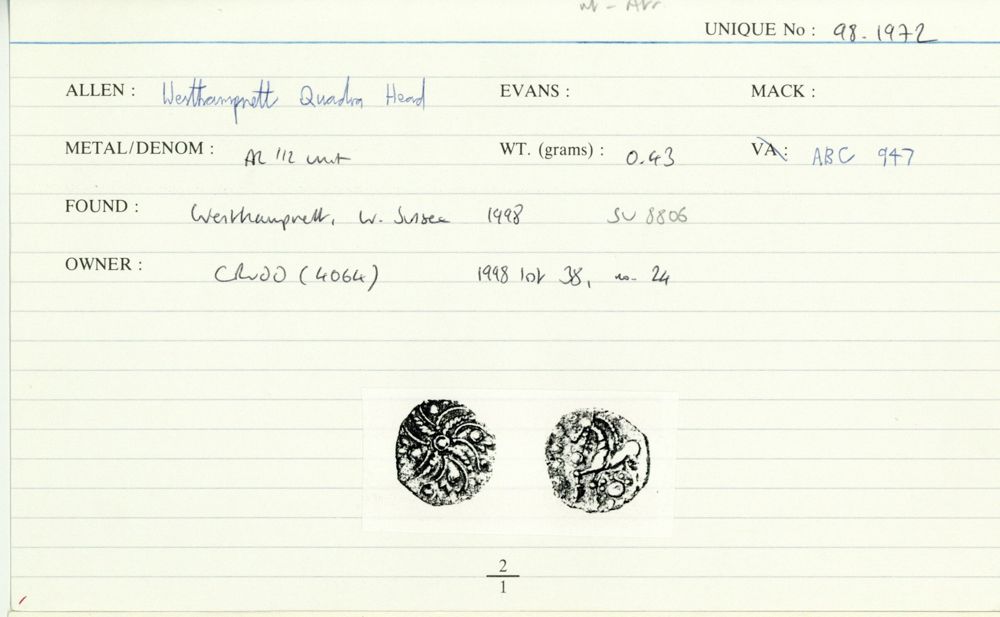 UNIQUE No : 98.1972
ALLEN : Westhampnett Quadra Head EVANS : MACK :
METAL/DENOM : AR 1/2 unit WT. (grams) : 0.43 VA : ABC 947
FOUND : Westhampnett, W. Sussex 1998 SU 8806
OWNER : (4064) 1998 lot 38, no. 24
2
1